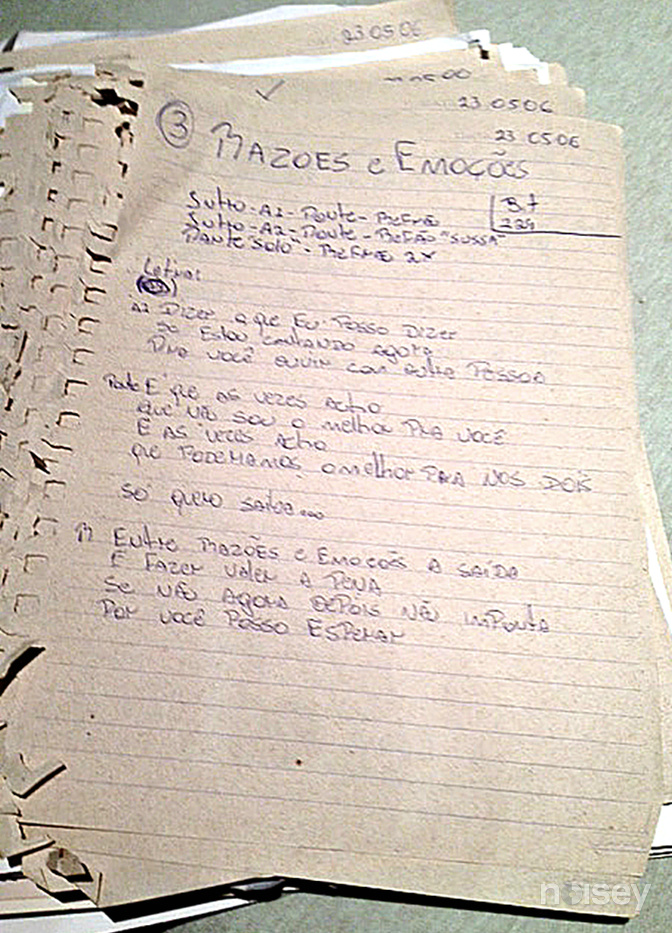 23.05.06
23.05.06
23.05.06
3 RAZOES e EMOÇÕES
Intro - A1 - Ponte - REFRÃO
Intro - A2 - Ponte - REFRÃO "SUSSA"
PARTE "SOLO" - REFRÃO 2X
3.7
229
Letra:
A1 DIZER o que EU POSSO DIZER
SE ESTOU CANTANDO AGORA
PRA VOCÊ OUVIR COM OUTRA PESSOA
Ponte E QUE AS VEZES ACHO
QUE NÃO SOU O MELHOR PRA VOCÊ
E AS VEZES ACHO
QUE PODERIAMOS o melhor PRA NOS DOIS
SÓ QUERO SAIBA...
R ENTRE RAZÕES e EMOÇOES A SAIDA
E FAZER VALER A PENA
SE NÃO AGORA DEPOIS NÃO IMPORTA
POR VOCÊ POSSO ESPERAR